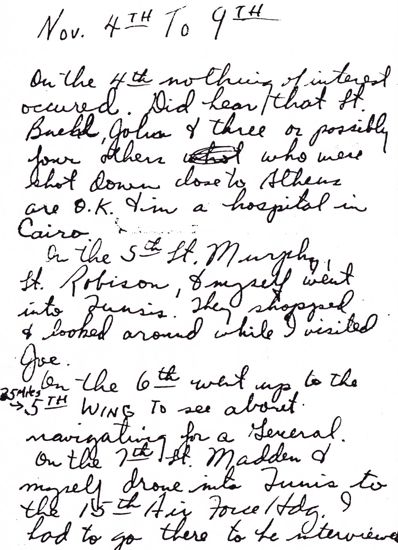 Nov. 4TH To 9TH
On the 4th nothing of interest
occured. Did hear that Lt.
Buehl, John & three or possibly
four others who were
shot down close to Athens
are O.K. & in a hospital in
Cairo.
On the 5th Lt. Murphy,
Lt. Robison, & myself went
into Tunsis. They shopped
& looked around while I visited
Joe.
On the 6th went up to the
25 MIs → 5TH WING To see about
navigating for a General.
On the 7th Lt. Madden &
myself drove into Tunis to
the 15th Air Force Hdq. I
had to go there to be interviewe